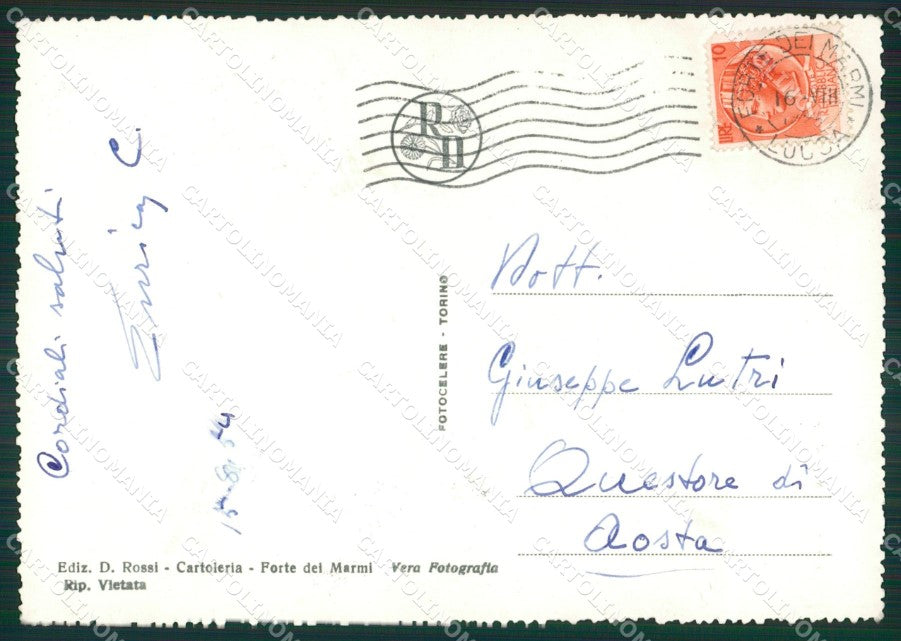 Cordiali saluti
Enrica C.
15.8.54
Ediz. D. Rossi - Cartoleria - Forte dei Marmi Vera Fotografia
Rip. Vietata
FOTOCELERE - TORINO
R
10
LIRE
FORTE DEI MARMI
16 VIII
* LUCCA *
Dott.
Giuseppe Lutri
Questore di
Aosta
CARTOLINOMANIA